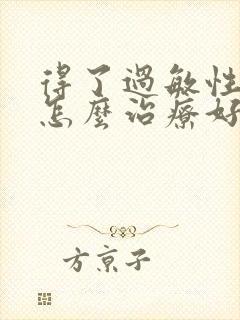 得了過敏性
怎麼治療好
方京子